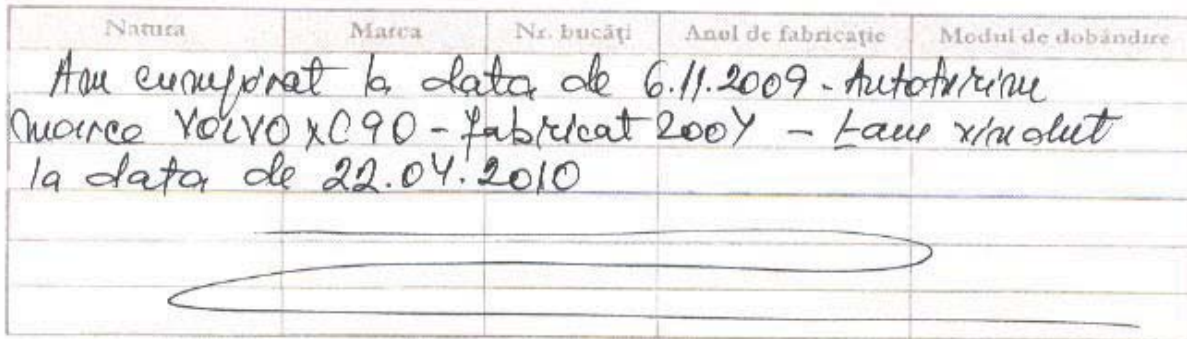 Natura Marca Nr. bucăţi Anul de fabricaţie Modul de dobândire
Am cumpărat la data de 6.11.2009 - Autoturism
marca VOLVO XC90 - fabricat 2004 - L-am vândut
la data de 22.04.2010